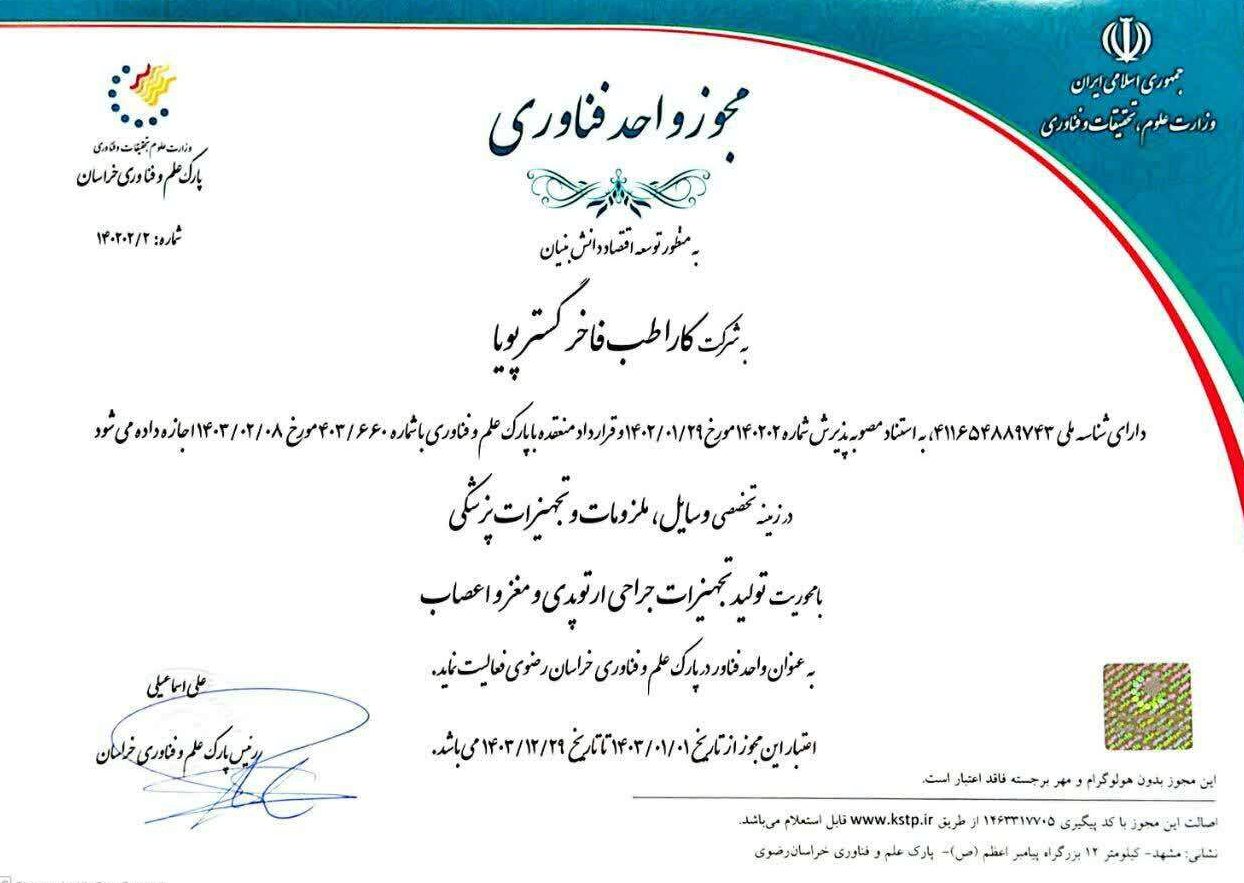 جمهوری اسلامی ایران
وزارت علوم، تحقیقات و فناوری
وزارت علوم تحقیقات و فناوری
پارک علم و فناوری خراسان
شماره: ۱۴۰۲۰۲/۲
مجوز واحد فناوری
به منظور توسعه اقتصاد دانش بنیان
به شرکت کارا طب فاخر گستر پویا
دارای شناسه ملی ۴۱۱۶۵۴۸۸۹۷۴۳، به استناد مصوبه پذیرش شماره ۱۴۰۲۰۲ مورخ ۱۴۰۲/۰۱/۲۹ و قرارداد منعقده با پارک علم و فناوری با شماره ۴۰۳/۶۶۰ مورخ ۱۴۰۳/۰۲/۰۸ اجازه داده می شود
در زمینه تخصصی وسایل، ملزومات و تجهیزات پزشکی
با محوریت تولید تجهیزات جراحی ارتوپدی و مغز و اعصاب
به عنوان واحد فناور در پارک علم و فناوری خراسان رضوی فعالیت نماید.
اعتبار این مجوز از تاریخ ۱۴۰۳/۰۱/۰۱ تا تاریخ ۱۴۰۳/۱۲/۲۹ می باشد.
علی اسماعیلی
رئیس پارک علم و فناوری خراسان
این مجوز بدون هولوگرام و مهر برجسته فاقد اعتبار است.
اصالت این مجوز با کد پیگیری ۱۴۶۳۳۱۷۷۰۵ از طریق www.kstp.ir قابل استعلام می‌باشد.
نشانی: مشهد- کیلومتر ۱۲ بزرگراه پیامبر اعظم (ص)- پارک علم و فناوری خراسان‌رضوی